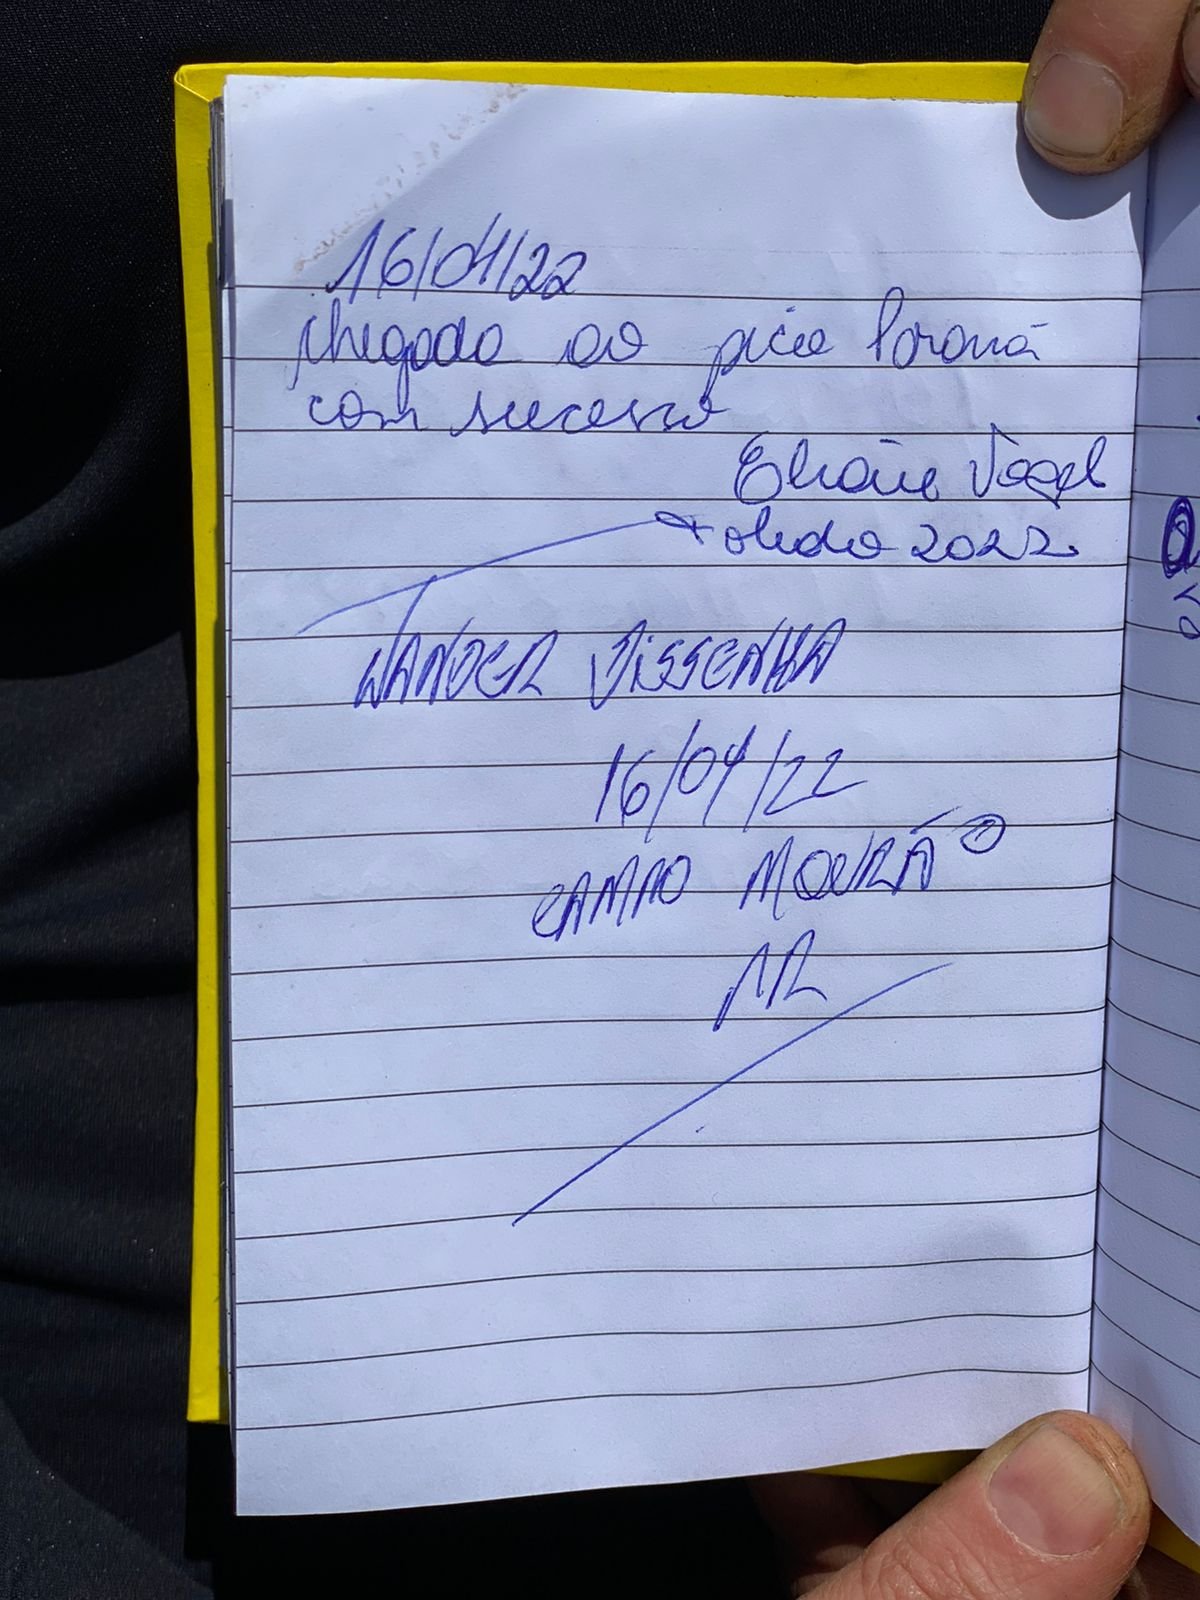 16/04/22
chegada ao pico Paraná
com sucesso
Eliane Vogel
Toledo 2022
WANDER BISSENHA
16/04/22
CAMPO MOURÃO
PR